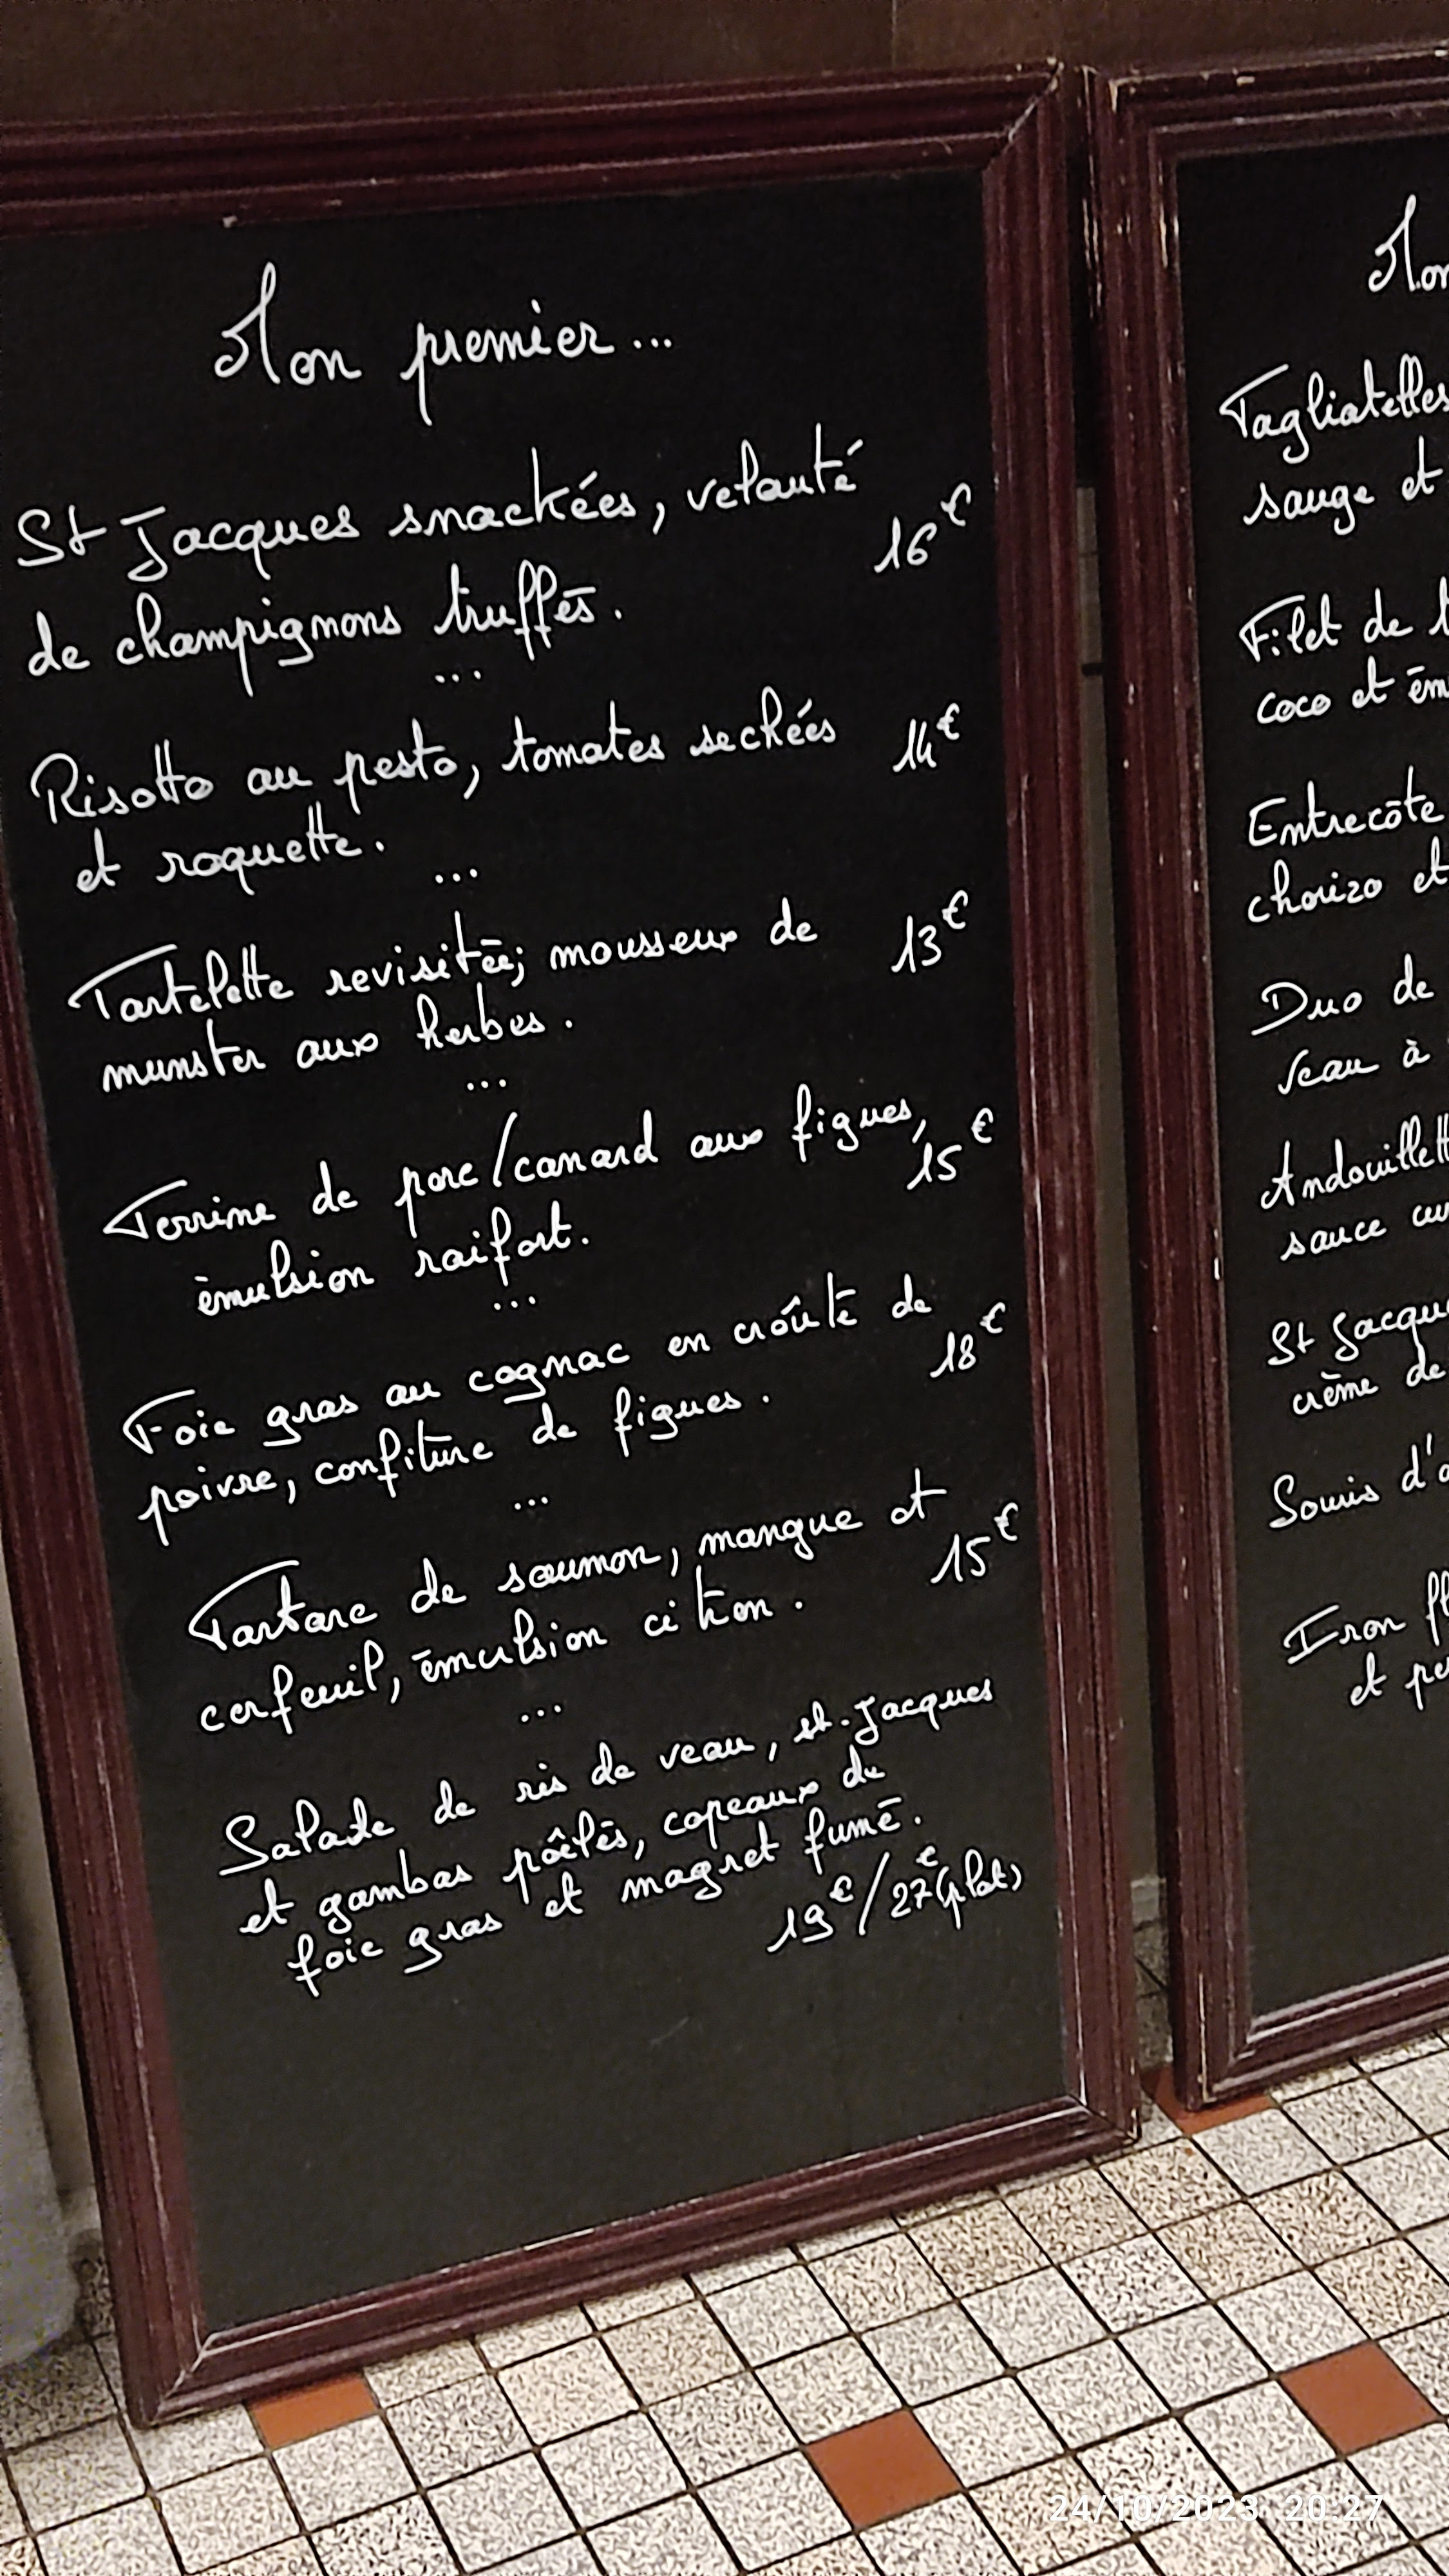 Mon premier...
St Jacques snackées, velouté
16€
de champignons truffés.
...
Risotto au pesto, tomates sechées 14€
et roquette.
...
Tartelette revisitée; mousseux de 13€
munster aux herbes.
...
Terrine de porc/canard aux figues,
15€
émulsion raifort.
...
Foie gras au cognac en croûte de
18€
poivre, confiture de figues.
...
Tartare de saumon, mangue et
15€
cerfeuil, émulsion citron.
...
Salade de ris de veau, st.Jacques
et gambas poêlés, copeaux de
foie gras et magret fumé.
19€/27€(plat)
Mon
Tagliatelles
sauge et
Filet de
coco et ém
Entrecôte
chorizo et
Duo de
veau à
Andouillett
sauce
St Jacqu
crème de
Souris d'a
Iron fl
et pe
24/10/2023 20:27